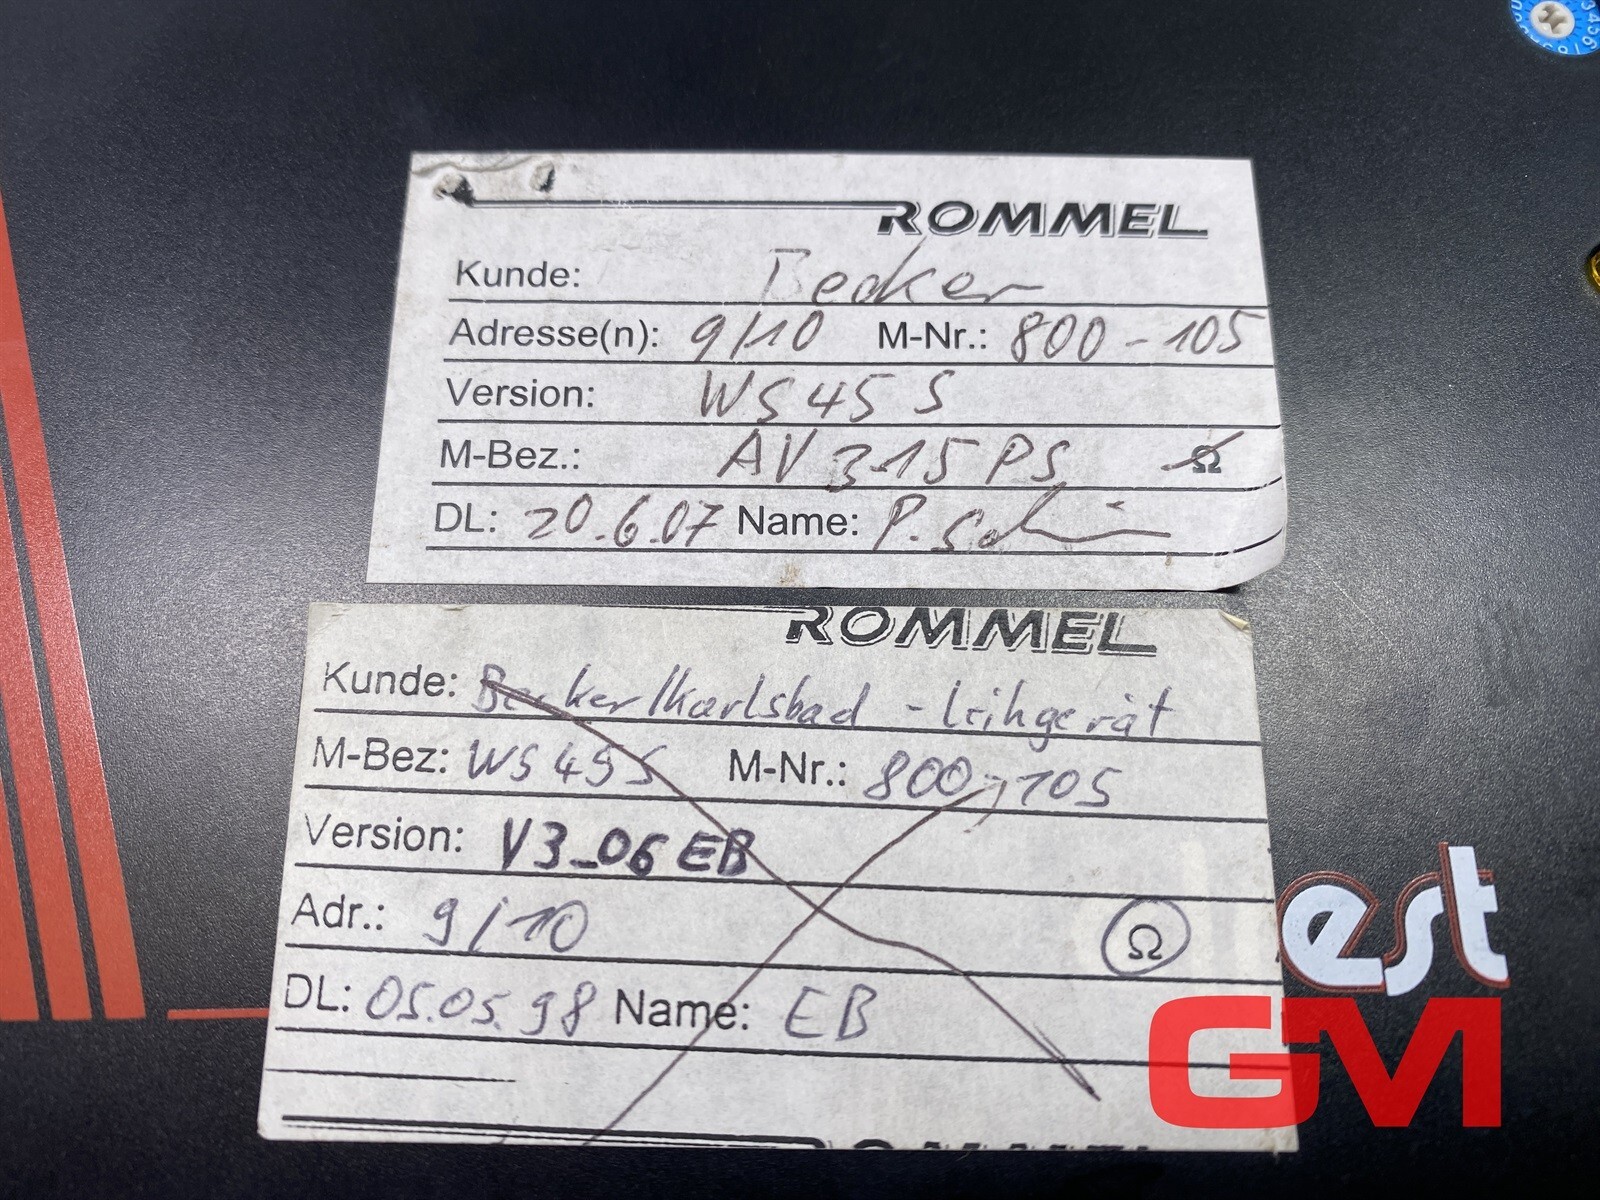 ROMMEL
Kunde: Becker
Adresse(n): 9/10 M-Nr.: 800-105
Version: WS 45 S
M-Bez.: AV 3.15 PS Ω
DL: 20.6.07 Name: P.
ROMMEL
Kunde: Becker/Karlsbad - Leihgerät
M-Bez: WS 45 S M-Nr.: 800-105
Version: V3_06 EB
Adr.: 9/10 Ω
DL: 05.05.98 Name: EB
est
GM